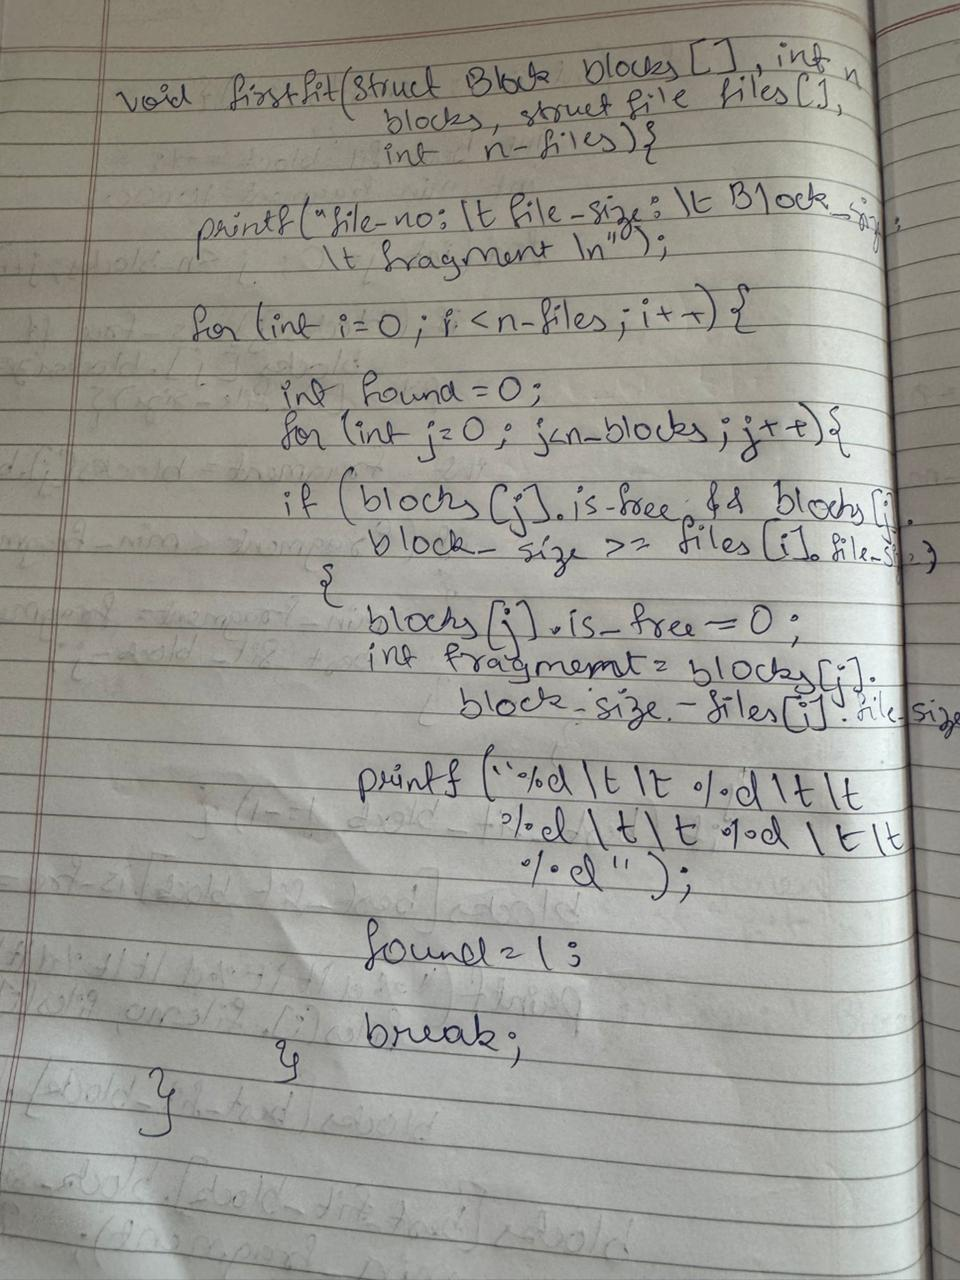 void firstfit(struct Block blocks[], int n
blocks, struct file files[],
int n-files){
printf("file-no: \t file-size: \t Block_size;
\t fragment \n");
for (int i=0; i<n-files; i++){
int found=0;
for (int j=0; j<n-blocks; j++){
if (blocks[j].is-free && blocks[j].
block-size >= files[i].file-size)
{
blocks[j].is-free=0;
int fragmemt= blocks[j].
block-size-files[i].file-size
printf("%d \t \t %d \t \t
%d \t \t %d \t \t
%d");
found=1;
break;
}
}